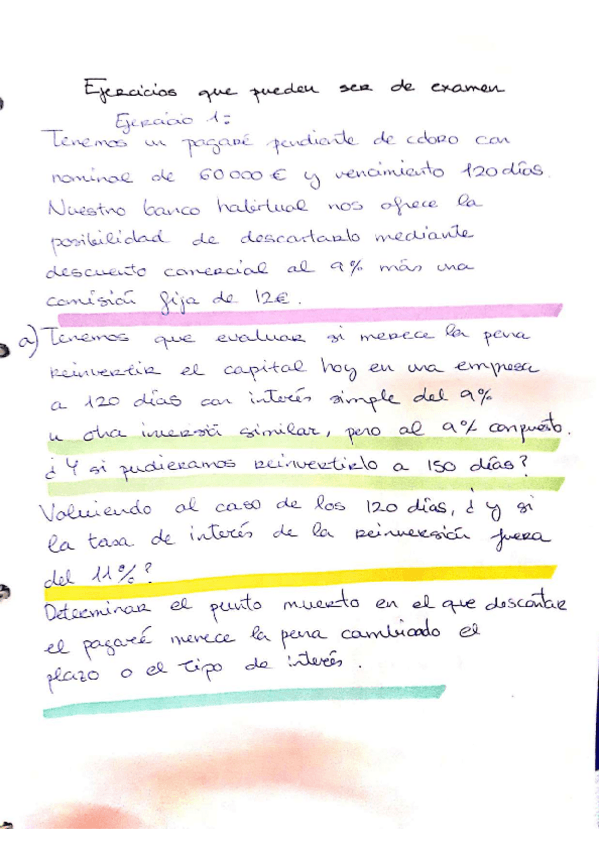 Ejercicios que pueden ser de examen
Ejercicio 1:
Tenemos un pagaré pendiente de cobro con
nominal de 60000 € y vencimiento 120 días.
Nuestro banco habitual nos ofrece la
posibilidad de descontarlo mediante
descuento comercial al 9% más una
comisión fija de 12€.
a) Tenemos que evaluar si merece la pena
reinvertir el capital hoy en una empresa
a 120 días con interés simple del 9%
u otra inversión similar, pero al 9% compuesto.
¿Y si pudieramos reinvertirlo a 150 días?
Volviendo al caso de los 120 días, ¿y si
la tasa de interés de la reinversión fuera
del 11%?
Determinar el punto muerto en el que descontar
el pagaré merece la pena cambiado el
plazo o el tipo de interés.